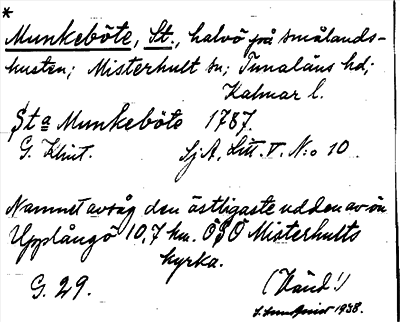 *
Munkeböte, St., halvö på smålands-
kusten; Misterhult sn; Tunaläns hd;
Kalmar l.
Sta Munkeböte 1787.
G. Klint. SjA, Litt. V. N:o 10
Namnet avsåg den östligaste udden av ön
Upplångö 10,7 km. ÖSÖ Misterhults
kyrka.
G. 29. (Händ!)
1938.